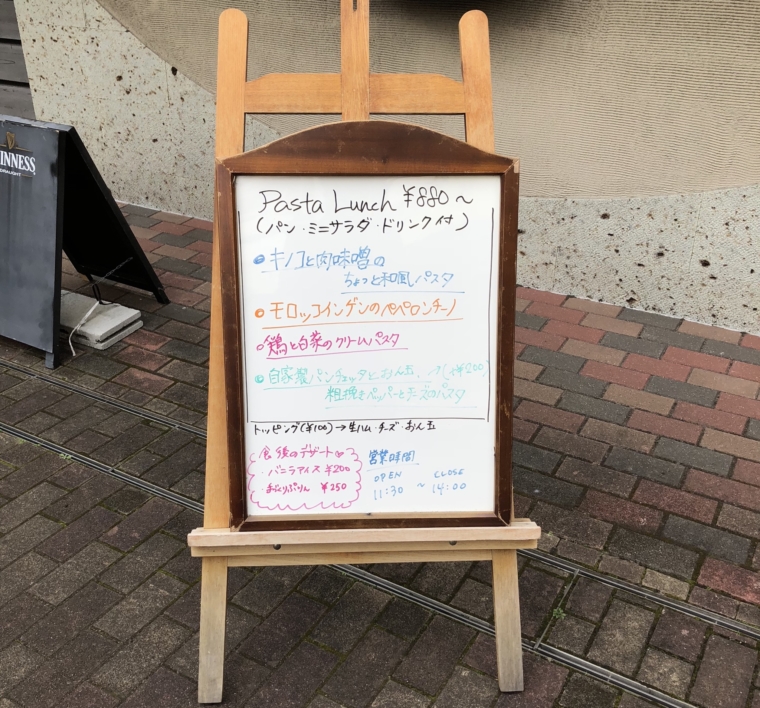 GUINNESS
DRAUGHT
Pasta Lunch ¥880～
(パン・ミニサラダ・ドリンク付)
キノコと肉味噌の
ちょっと和風パスタ
モロッコインゲンのペペロンチーノ
鶏と白菜のクリームパスタ
自家製パンチェッタとおん玉、(+¥200)
粗挽きペッパーとチーズのパスタ
トッピング(¥100)→生ハム・チーズ・おん玉
食後のデザート
・バニラアイス ¥200
・ ¥250
営業時間
OPEN CLOSE
11:30 ～ 14:00